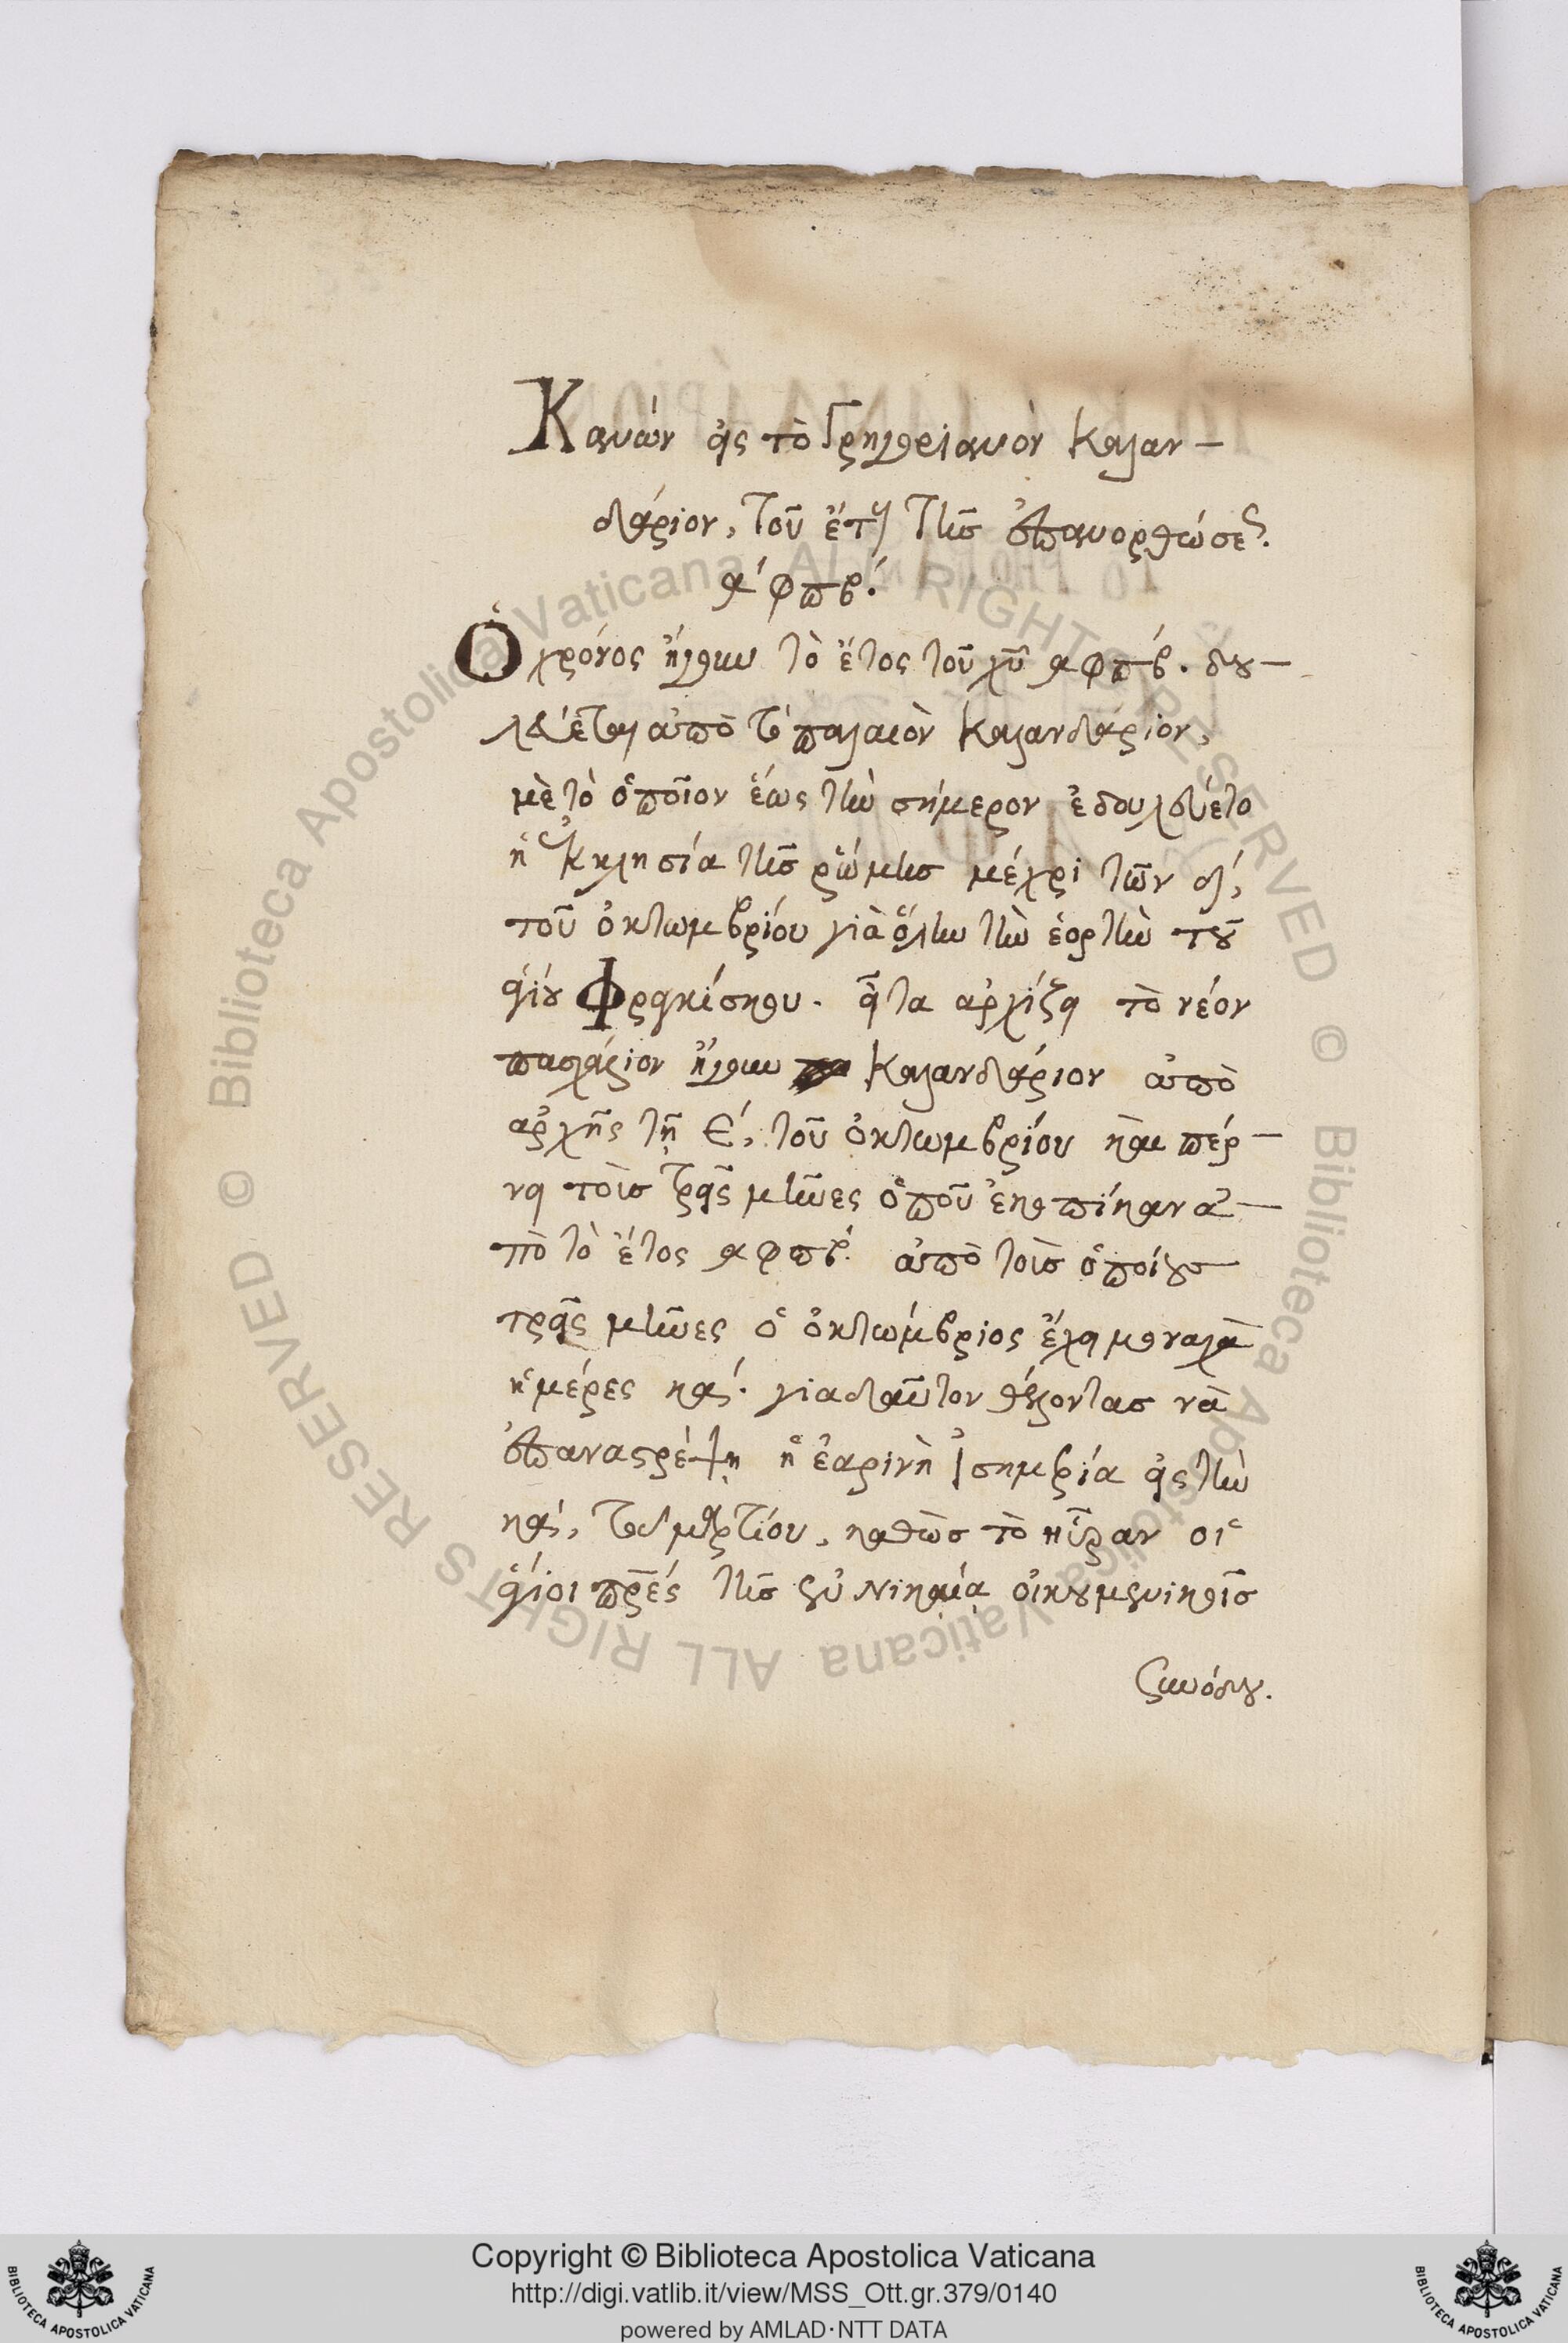 Κανὼν εἰς τὸ Γρηγοριανὸν Καλαν-
δάριον, τοῦ ἔτους τῆς ἐπανορθώσεως.
αφπβ.
Ὁ χρόνος ἤγουν τὸ ἔτος τοῦ χῦ αφπβ. δου-
λεύεται ἀπὸ τὸ παλαιὸν Καλανδάριον,
μὲ τὸ ὁποῖον ἕως τὴν σήμερον ἐδουλεύετο
ἡ Ἐκκλησία τῆς ῥώμης μέχρι τῶν δ,
τοῦ ὀκτωμβρίου γιὰ ὅλην τὴν ἑορτὴν τοῦ
ἁγίου Φραγκίσκου. εἶτα ἀρχίζει τὸ νέον
πασχάλιον ἤγουν Καλανδάριον ἀπὸ
ἀρχῆς τῇ ε, τοῦ ὀκτωμβρίου καὶ πέρ-
νει τοὶς τρεῖς μῆνες ὁποῦ ἐκοπίηκαν ἀ-
πὸ τὸ ἔτος αφπβ. ἀπὸ τοὶς ὁποίους
τρεῖς μῆνες ὁ ὀκτώμβριος ἔχει μοναχὰ
ἡμέρες κα. γιαδαῦτον θέλοντας νὰ
ἐπαναστρέψῃ ἡ ἐαρινὴ Ἰσημβρία εἰς τὴν
κα, τοῦ μαρτίου, καθὼς τὸ ηὗραν οἱ
ἅγιοι πρες τῆς ἐν Νικαίᾳ οἰκουμενικῆς
συνόδου.
Copyright © Biblioteca Apostolica Vaticana
http://digi.vatlib.it/view/MSS_Ott.gr.379/0140
powered by AMLAD·NTT DATA